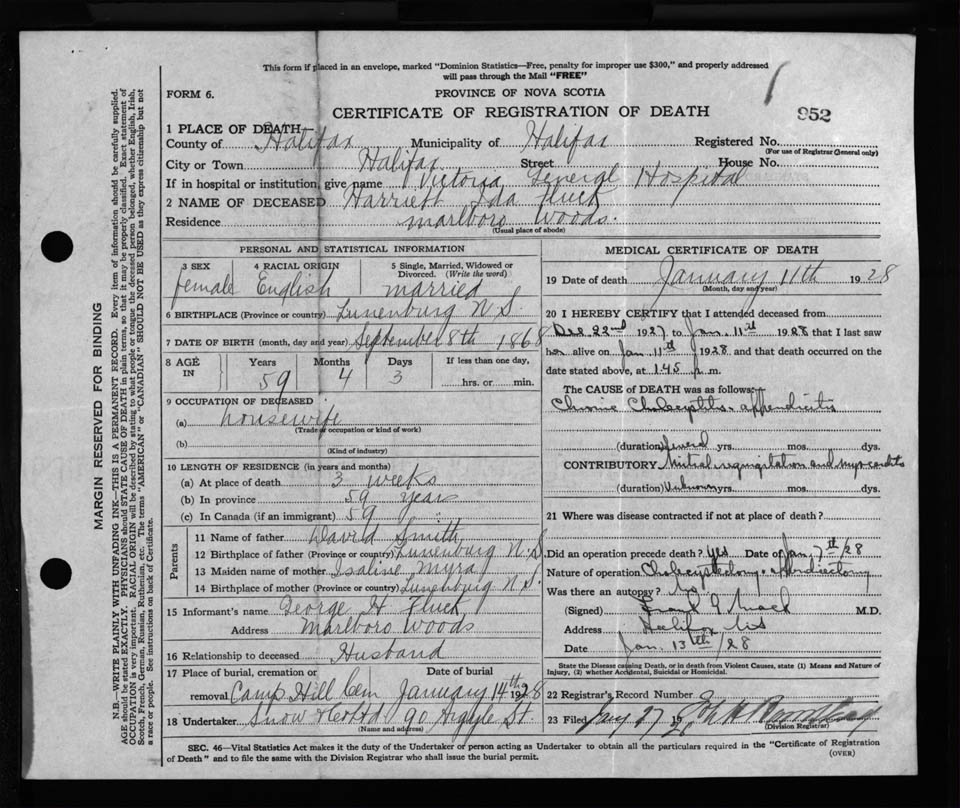 This form if placed in an envelope, marked "Dominion Statistics—Free, penalty for improper use $300," and properly addressed
will pass through the Mail "FREE"
FORM 6.
PROVINCE OF NOVA SCOTIA
CERTIFICATE OF REGISTRATION OF DEATH
952
1 PLACE OF DEATH—
County of Halifax Municipality of Halifax Registered No.
(For use of Registrar General only)
City or Town Halifax Street House No.
If in hospital or institution, give name Victoria General Hospital
2 NAME OF DECEASED Harriett Ida Fluck
Residence Marlboro Woods.
(Usual place of abode)
PERSONAL AND STATISTICAL INFORMATION
3 SEX 4 RACIAL ORIGIN 5 Single, Married, Widowed or
Divorced. (Write the word)
female English married
6 BIRTHPLACE (Province or country) Lunenburg N.S.
7 DATE OF BIRTH (month, day and year) September 8th 1868
8 AGE IN Years Months Days If less than one day,
59 4 3 hrs. or min.
9 OCCUPATION OF DECEASED
(a) housewife
(Trade occupation or kind of work)
(b)
(Kind of industry)
10 LENGTH OF RESIDENCE (in years and months)
(a) At place of death 3 weeks
(b) In province 59 years
(c) In Canada (if an immigrant) 59 "
Parents
11 Name of father David Smith
12 Birthplace of father (Province or country) Lunenburg N.S.
13 Maiden name of mother Isaline Myra
14 Birthplace of mother (Province or country) Lunenburg N.S.
15 Informant's name George H Fluck
Address Marlboro Woods
16 Relationship to deceased Husband
17 Place of burial, cremation or Date of burial
removal Camp Hill Cem January 14th 1928
18 Undertaker Snow & Co Ltd 90 Argyle St.
(Name and address)
MEDICAL CERTIFICATE OF DEATH
19 Date of death January 11th 1928
(Month, day and year)
20 I HEREBY CERTIFY that I attended deceased from
Dec 22nd 1927 to Jan. 11th 1928 that I last saw
her alive on Jan 11th 1928 and that death occurred on
date stated above, at 1.45 p.m.
The CAUSE OF DEATH was as follows:
Chronic Cholecystitis. appendicitis
(duration) several yrs. mos. dys.
CONTRIBUTORY Mitral regurgitation and myocarditis
(duration) Unknown yrs. mos. dys.
21 Where was disease contracted if not at place of death?
Did an operation precede death? Yes Date of Jan 7th/28
Nature of operation Cholecystectomy & appendectomy
Was there an autopsy? No.
(Signed) Frank G Mack M.D.
Address Halifax N.S
Date Jan. 13th/28
State the Disease causing Death, or in death from Violent Causes, state (1) Means and Nature of
Injury, (2) whether Accidental, Suicidal or Homicidal.
22 Registrar's Record Number
23 Filed Jany 27 1928
(Division Registrar)
SEC. 46—Vital Statistics Act makes it the duty of the Undertaker or person acting as Undertaker to obtain all the particulars required in the "Certificate of Registration
of Death" and to file the same with the Division Registrar who shall issue the burial permit.
(OVER)
MARGIN RESERVED FOR BINDING
N.B.—WRITE PLAINLY WITH UNFADING INK—THIS IS A PERMANENT RECORD. Every item of information should be carefully supplied.
AGE should be stated EXACTLY. PHYSICIANS should STATE CAUSE OF DEATH in plain terms, so that it may be properly classified. Exact statement of
OCCUPATION is very important. RACIAL ORIGIN will be described by stating to what people or tongue the deceased person belonged, whether English, Irish,
Scotch, French, German, Russian, Ruthenian, etc. The terms "AMERICAN" or "CANADIAN" SHOULD NOT BE USED as they express citizenship but not
a race or people. See instructions on back of Certificate.